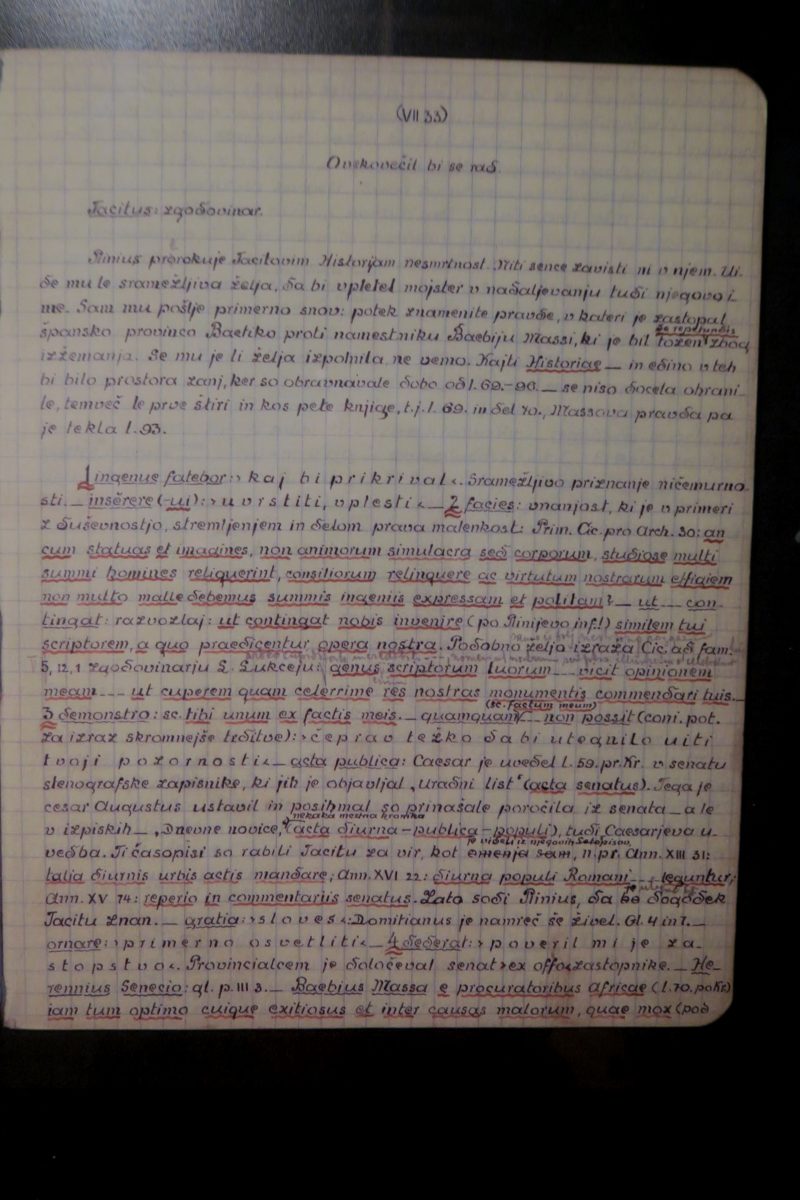 (VII 33)
Ovekovečil bi se rad.
Tacitus: zgodovinar.
Plinius prerokuje Tacitovim Historijam nesmrtnost. Niti sence zavisti ni v njem. Ui-
de mu le sramežljiva želja, da bi vpletel mojster v nadaljevanju tudi njegovo i-
me. Sam mu pošlje primerno snov: potek znamenite pravde, v kateri je zastopal
de repetundis
špansko provinco Baetiko proti namestniku Baebiju Massi, ki je bil tožen zbog
izžemanja. Se mu je li želja izpolnila ne vemo. Kajti Historiae — in edino v teh
bi bilo prostora zanj, ker so obravnavale dobo od l. 69.-96. — se niso docela ohrani-
le, temveč le prve štiri in kos pete knjige, t.j. l. 69. in del 70., Massova pravda pa
je tekla l. 93.
1 ingenue fatebor: »kaj bi prikrival«. Sramežljivo priznanje ničemurno-
sti. — inserere (-ui): »uvrstiti, vplesti« — 2 facies: vnanjost, ki je v primeri
z duševnostjo, stremljenjem in delom prava malenkost: Prim. Cic. pro Arch. 30: an
cum statuas et imagines, non animorum simulacra sed corporum, studiose multi
summi homines reliquerint, consiliorum relinquere ac virtutum nostrarum effigiem
non multo malle debemus summis ingeniis expressam et politam? — ut ... con-
tingat: razvozlaj: ut contingat nobis invenire (po Plinijevo inf.!) similem tui
scriptorem, a quo praedicentur opera nostra. Podobno željo izraža Cic. ad fam.
5, 12, 1 zgodovinarju L. Lukceju: genus scriptorum tuorum ... vicit opinionem
meam ... ut cuperem quam celerrime res nostras monumentis commendari tuis. —
(sc. factum meum)
3 demonstro: sc. tibi unum ex factis meis. — quamquam ... non possit (coni. pot.
za izraz skromnejše trditve): »čeprav težko da bi utegnilo uiti
tvoji pozornosti« — acta publica: Caesar je uvedel l. 59. pr. Kr. v senatu
stenografske zapisnike, ki jih je objavljal „Uradni list" (acta senatus). Tega je
cesar Augustus ustavil in posihmal so prinašale poročila iz senata — a le
nekaka mestna kronika
v izpiskih — „Dnevne novice„ (acta diurna - publica - populi), tudi Caesarjeva u-
je videti iz njegovih Letopisov
vedba. Ti časopisi so rabili Tacitu za vir, kot omenja sam, n. pr. Ann. XIII 31:
talia diurnis urbis actis mandare; Ann. XVI 22: diurna populi Romani ... leguntur;
Ann. XV 74: reperio in commentariis senatus. Zato sodi Plinius, da bo dogodek
Tacitu znan. — gratia: »sloves«: Domitianus je namreč še živel. Gl. 4 in 7. —
ornare: »primerno osvetliti« — 4 dederat: »poveril mi je za-
stopstvo«. Provincialcem je določeval senat ex offo zastopnike. — He-
rennius Senecio: gl. p. III 3. — Baebius Massa e procuratoribus Africae (l. 70. po Kr.)
iam tum optimo cuique exitiosus et inter causas malorum, quae mox (pod